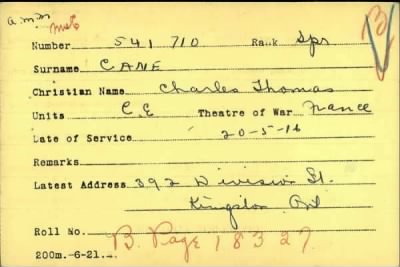 a.m.n
Number 541710 Rank Spr
Surname CANE
Christian Name Charles Thomas
Units C.E Theatre of War France
Date of Service 20-5-16
Remarks
Latest Address 392 Division St.
Kingston Ont
Roll No. B. Page 18327.
200m.-6-21.